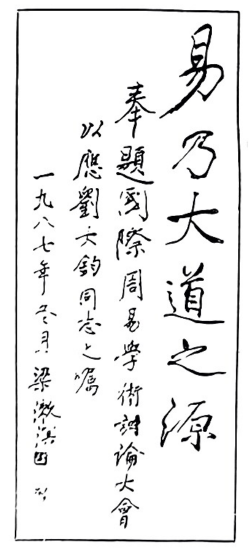 易乃大道之源
奉題國際周易學術討論大會
以應劉大鈞同志之囑
一九八七年冬月梁漱溟